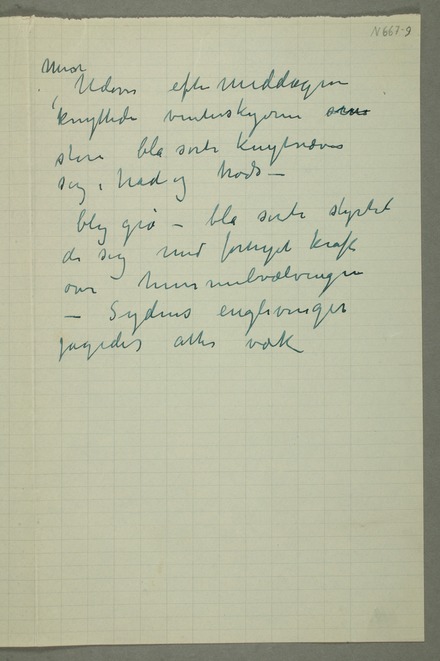 N 667-9
Men
Udover eftermiddagen
knyttede vinterskyerne som
store blå sorte knytnæver
sig i had og trods —
bly grå — blå sorte styrtet
de sig med fornyet kraft
over himmelhvælvingen
— Sydens englevinger
jagedes atter væk